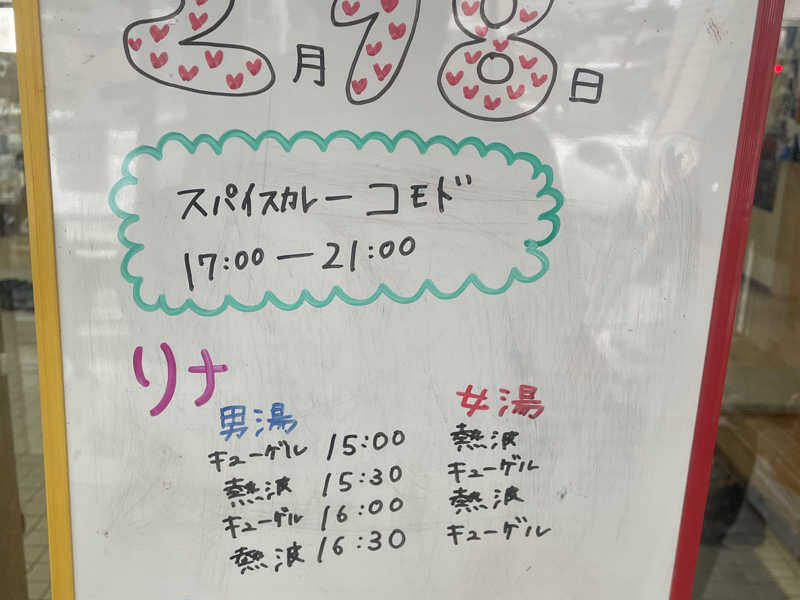 2月18日
スパイスカレー コモド
17:00ー21:00
リナ
男湯 女湯
キューゲル 15:00 熱波
熱波 15:30 キューゲル
キューゲル 16:00 熱波
熱波 16:30 キューゲル